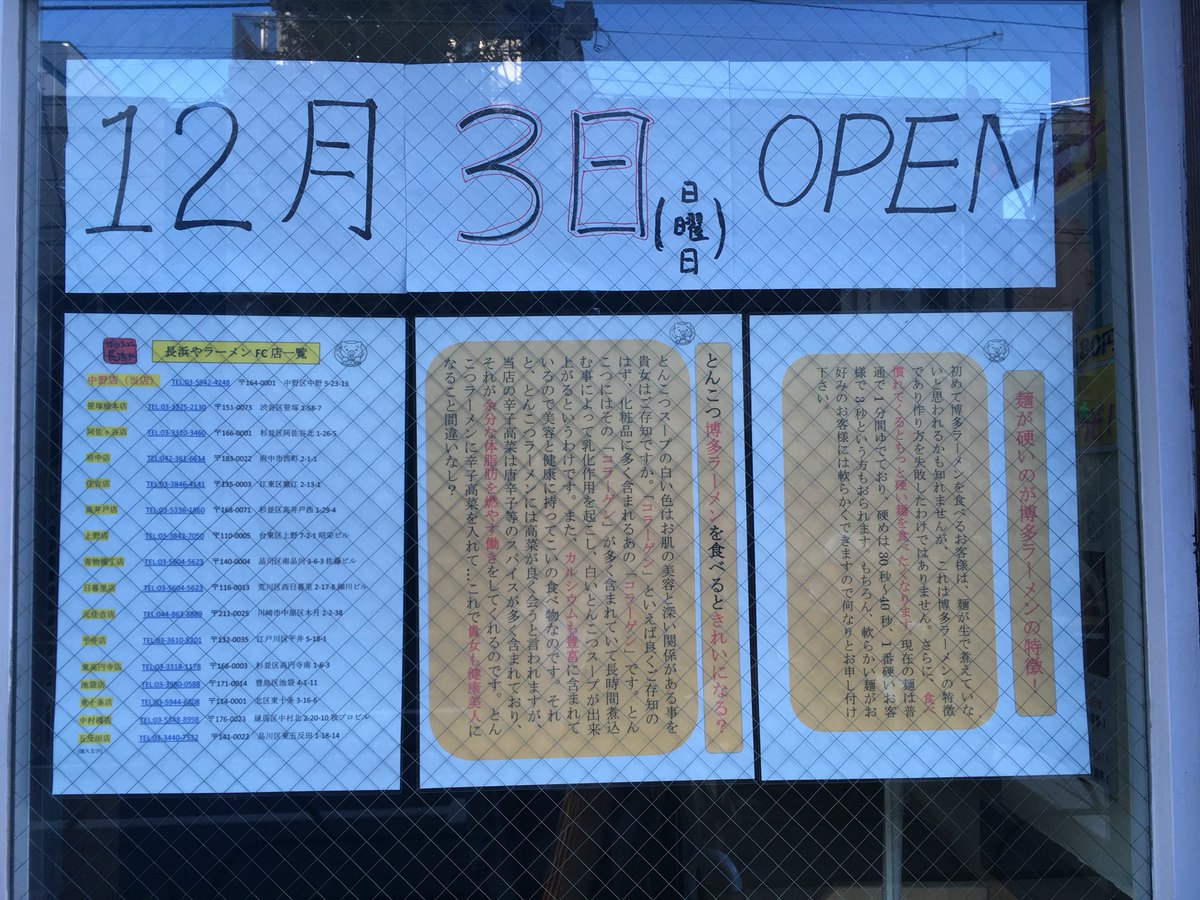 12月3日(日曜日) OPEN
長浜やラーメンFC店一覧
中野店(当店) TEL:03-5942-4248 〒164-0001 中野区中野5-23-13
笹塚総本店 TEL:03-3375-2130 〒151-0073 渋谷区笹塚1-58-7
阿佐ヶ谷店 TEL:03-3310-3460 〒166-0001 杉並区阿佐谷北1-26-5
府中店 TEL:042-361-6614 〒183-0022 府中市宮西町2-1-1
住吉店 TEL:03-3846-4141 〒135-0003 江東区猿江2-13-1
高井戸店 TEL:03-5336-1860 〒168-0071 杉並区高井戸西1-29-4
上野店 TEL:03-3842-7050 〒110-0005 台東区上野7-2-1 昭栄ビル
青物横丁店 TEL:03-5604-5623 〒140-0004 品川区南品川3-6-3 佐藤ビル
日暮里店 TEL:03-5604-5623 〒116-0013 荒川区西日暮里2-17-8 細川ビル
元住吉店 TEL:044-863-8889 〒211-0025 川崎市中原区木月2-2-38
平井店 TEL:03-3610-9201 〒132-0035 江戸川区平井5-18-1
東高円寺店 TEL:03-3318-1178 〒166-0003 杉並区高円寺南1-6-3
池袋店 TEL:03-3980-0588 〒171-0014 豊島区池袋4-1-11
東十条店 TEL:03-5944-6808 〒114-0001 北区東十条3-16-6
中村橋店 TEL:03-5848-8998 〒176-0023 練馬区中村北2-20-10 牧プロビル
五反田店 TEL:03-3440-7532 〒141-0022 品川区東五反田1-18-14
とんこつ博多ラーメンを食べるときれいになる?
とんこつスープの白い色はお肌の美容と深い関係がある事を
貴女はご存知ですか。「コラーゲン」といえば良くご存知の
はず。化粧品に多く含まれるあの「コラーゲン」です。とん
こつにはその「コラーゲン」が多く含まれていて長時間煮込
む事によって乳化作用を起こし、白いとんこつスープが出来
上がるというわけです。また、カルシウムも豊富に含まれて
いるので美容と健康に持ってこいの食べ物なのです。それ
と、とんこつラーメンには高菜が良く会うと言われますが、
当店の辛子高菜は唐辛子等のスパイスが多く含まれており
それが余分な体脂肪を燃やす働きをしてくれるのです。とん
こつラーメンに辛子高菜を入れて…これで貴女も健康美人に
なること間違いなし?
麺が硬いのが博多ラーメンの特徴!
初めて博多ラーメンを食べるお客様は、麺が生で煮えていな
いと思われるかも知れませんが、これは博多ラーメンの特徴
であり作り方を失敗したわけではありません。さらに、食べ
慣れてくるともっと硬い麺を食べたくなります。現在の麺は普
通で1分間ゆでており、硬めは30秒〜40秒、1番硬いお客
様で3秒という方もおられます。もちろん、軟らかい麺がお
好みのお客様には軟らかくできますので何なりとお申し付け
下さい。